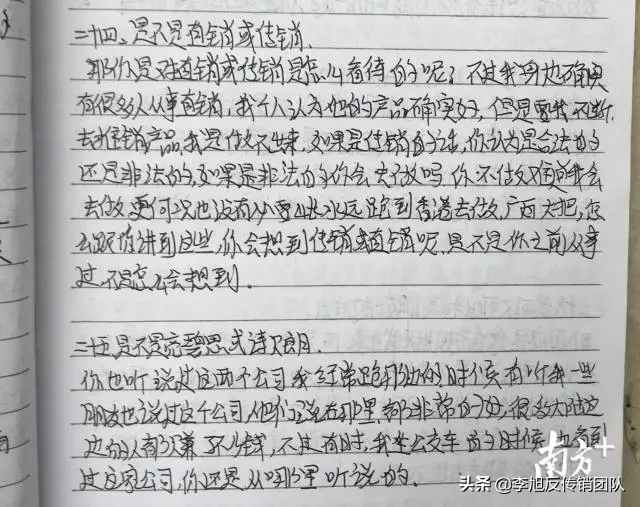 二十四、是不是直销或传销.
那你是对直销或传销是怎么看待的呢？不过我身边确实
有很多人从事直销，我个人认为他的产品确实好，但是要我不断
去推销产品，我是做不出来，如果是传销的话，你认为是合法的
还是非法的，如果是非法的你会去做吗，你不做难道我会
去做，更何况也没有必要山长水远跑到香港去做，广西大把，怎
么跟你讲到这些，你会想到传销或直销呢，是不是你之前从事
过，不是怎么会想到.
二十五是不是完美思或诗贝朗.
你也听说过这两个公司，我经常跑那边的时候，有听我一些
朋友也说过这个公司，他们说在那里都非常的好，很多大陆这
边的人都赚了不少钱，不过有时，我坐公交车的时候也看到
过这家公司，你还是从哪里听说的.
南方+
头条 @李旭反传销团队